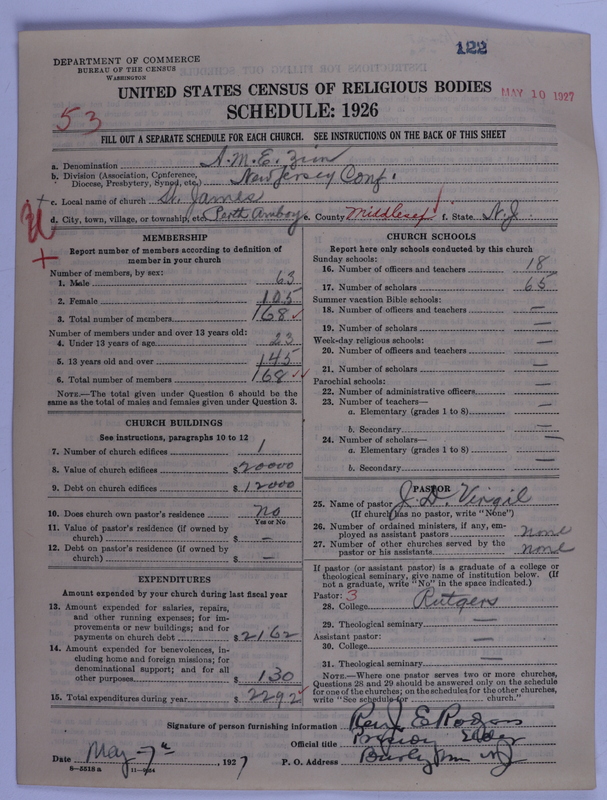 122
DEPARTMENT OF COMMERCE
BUREAU OF THE CENSUS
WASHINGTON
UNITED STATES CENSUS OF RELIGIOUS BODIES
MAY 10 1927
SCHEDULE: 1926
53
FILL OUT A SEPARATE SCHEDULE FOR EACH CHURCH. SEE INSTRUCTIONS ON THE BACK OF THIS SHEET
a. Denomination A.M.E. Zion
b. Division (Association, Conference, Diocese, Presbytery, Synod, etc.) New Jersey Conf.
c. Local name of church St. James
d. City, town, village, or township, etc. Perth Amboy e. County Middlesex f. State N.J.
MEMBERSHIP
Report number of members according to definition of member in your church
Number of members, by sex:
1. Male 63
2. Female 105
3. Total number of members 168
Number of members under and over 13 years old:
4. Under 13 years of age 23
5. 13 years old and over 145
6. Total number of members 168
NOTE.—The total given under Question 6 should be the same as the total of males and females given under Question 3.
CHURCH BUILDINGS
See instructions, paragraphs 10 to 12
7. Number of church edifices 1
8. Value of church edifices $20000
9. Debt on church edifices $12000
10. Does church own pastor's residence No
Yes or No
11. Value of pastor's residence (if owned by church) $ —
12. Debt on pastor's residence (if owned by church) $ —
EXPENDITURES
Amount expended by your church during last fiscal year
13. Amount expended for salaries, repairs, and other running expenses; for improvements or new buildings; and for payments on church debt $2162
14. Amount expended for benevolences, including home and foreign missions; for denominational support; and for all other purposes $130
15. Total expenditures during year $2292
CHURCH SCHOOLS
Report here only schools conducted by this church
Sunday schools:
16. Number of officers and teachers 18
17. Number of scholars 65
Summer vacation Bible schools:
18. Number of officers and teachers —
19. Number of scholars —
Week-day religious schools: —
20. Number of officers and teachers
21. Number of scholars —
Parochial schools: —
22. Number of administrative officers —
23. Number of teachers—
a. Elementary (grades 1 to 8) —
b. Secondary —
24. Number of scholars— —
a. Elementary (grades 1 to 8) —
b. Secondary —
PASTOR
25. Name of pastor J. D. Virgil
(If church has no pastor, write "None")
26. Number of ordained ministers, if any, employed as assistant pastors none
27. Number of other churches served by the pastor or his assistants none
If pastor (or assistant pastor) is a graduate of a college or theological seminary, give name of institution below. (If not a graduate, write "No" in the space indicated.)
Pastor: 3
28. College Rutgers
29. Theological seminary —
Assistant pastor:
30. College —
31. Theological seminary —
NOTE.—Where one pastor serves two or more churches, Questions 28 and 29 should be answered only on the schedule for one of the churches; on the schedules for the other churches, write "See schedule for church."
Signature of person furnishing information Rev J. E. Rodgers
Official title Elder
Date May 7th, 1927 P. O. Address N J
8—5518 a 11—9164